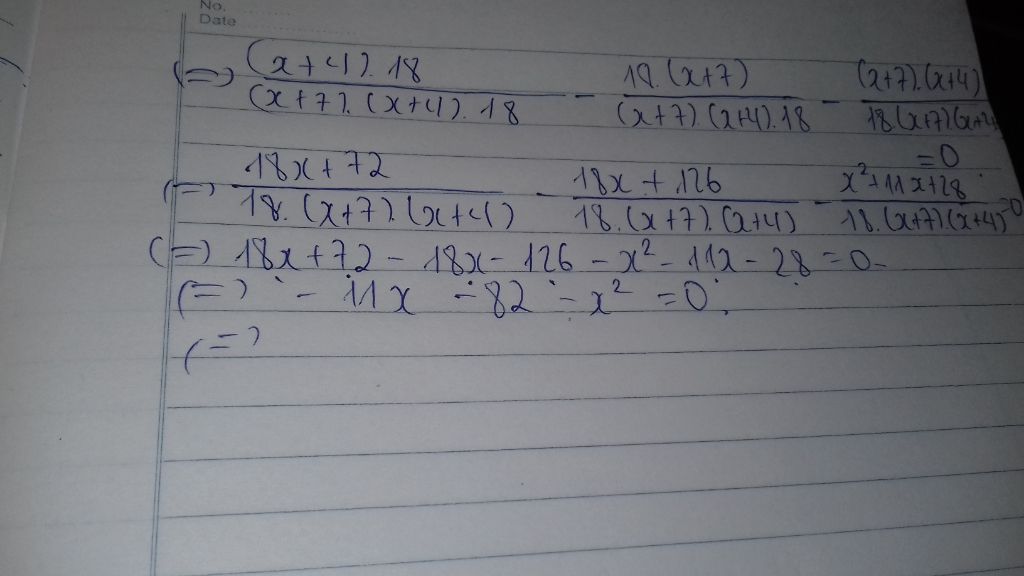 No.
Date
(=) (x+4).18 / (x+7).(x+4).18 - 18.(x+7) / (x+7)(x+4).18 - (x+7).(x+4) / 18(x+7)(x+4)
=0
(=) 18x+72 / 18.(x+7).(x+4) - 18x+126 / 18.(x+7).(x+4) - x²+11x+28 / 18.(x+7).(x+4) =0
(=) 18x+72 - 18x - 126 - x² - 11x - 28 = 0
(=) - 11x - 82 - x² = 0
(=)